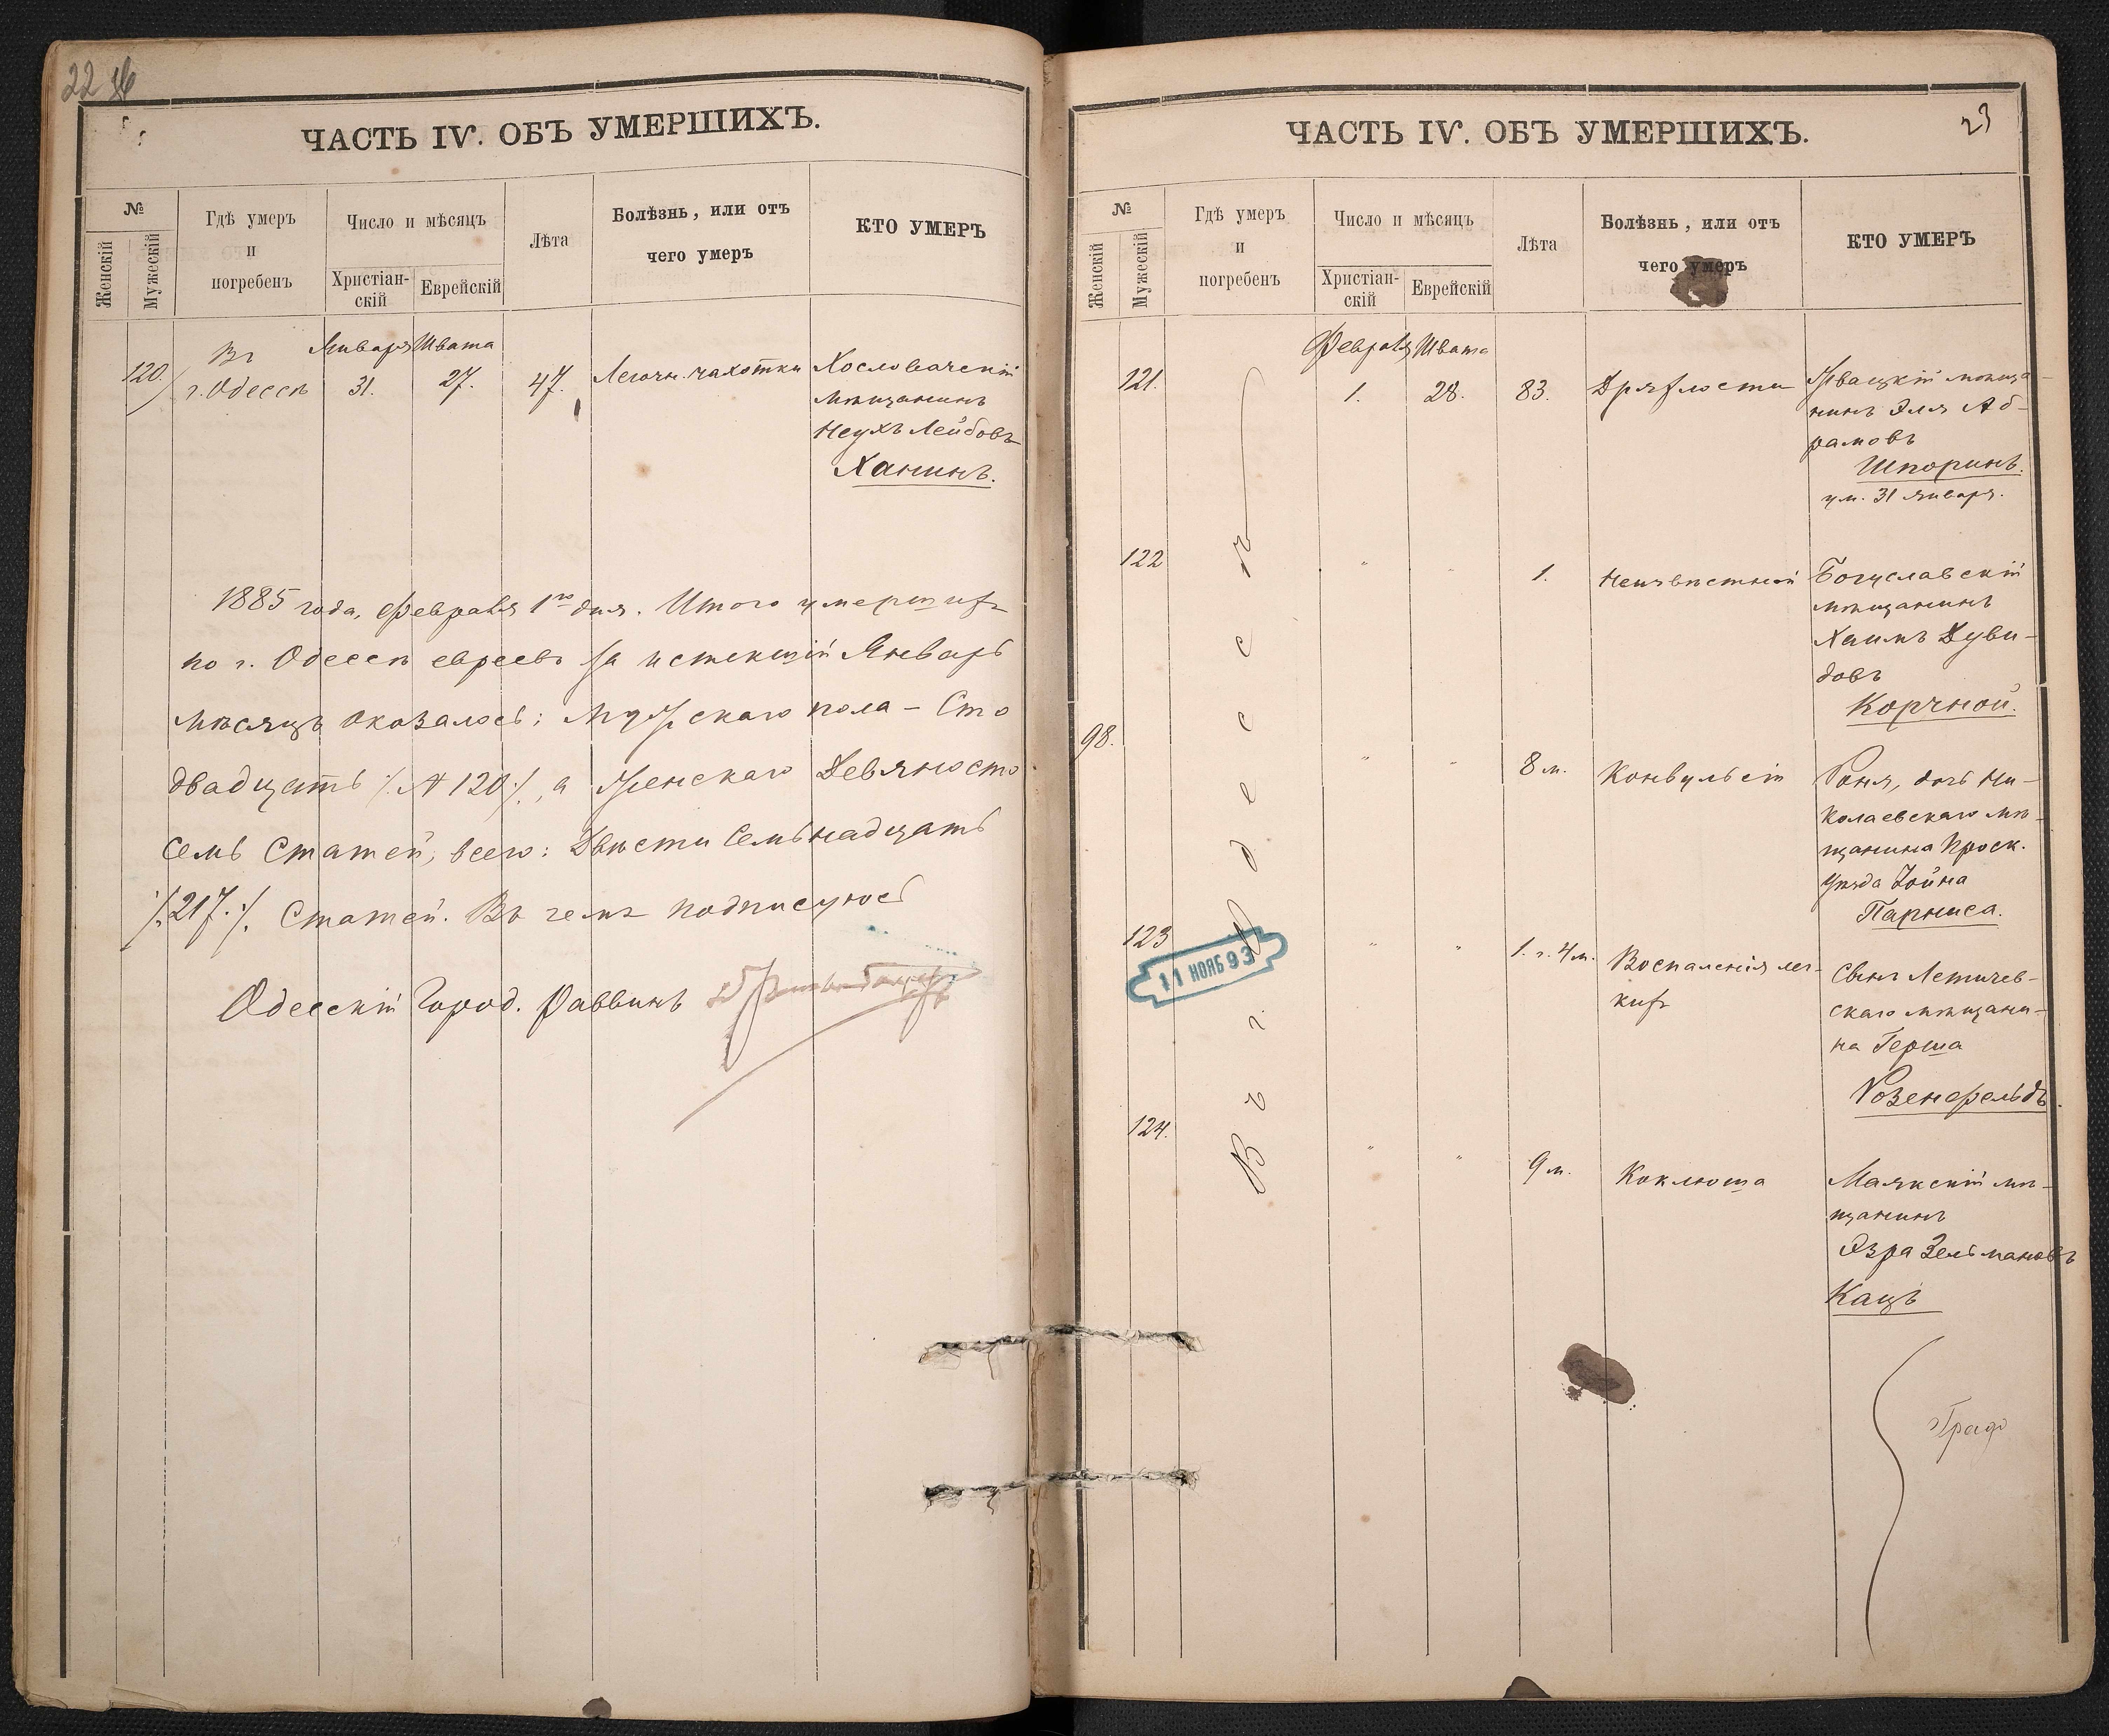 22
ЧАСТЬ IV. ОБЪ УМЕРШИХЪ.
№
Женскій
Мужескій
Гдѣ умеръ
и
погребенъ
Число и мѣсяцъ
Христіан-
скій
Еврейскій
Лѣта
Болѣзнь, или отъ
чего умеръ
КТО УМЕРЪ
Января Швата
120. Въ г. Одессѣ 31. 27. 47. Легочн. чахотки
мѣщанинъ
Нехъ Лейбовъ
Ханинъ.
1885 года, Февраля 1го дня. Итого умершихъ
по г. Одессѣ евреевъ за истекшій Январь
мѣсяцъ оказалось: Мужскаго пола – Сто
двадцать /:№ 120:/, а Женскаго Девяносто
семь Статей, всего: Двѣсти Семьнадцать
/:217:/ Статей. Въ чемъ подписуюсь
Одесскій Город. Раввинъ
23
ЧАСТЬ IV. ОБЪ УМЕРШИХЪ.
№
Женскій
Мужескій
Гдѣ умеръ
и
погребенъ
Число и мѣсяцъ
Христіан-
скій
Еврейскій
Лѣта
Болѣзнь, или отъ
чего умеръ
КТО УМЕРЪ
Въ г. Одессѣ
Февраля Швата
121. 1. 28. 83. Дряхлости
мѣща-
нинъ Эля Аб-
рамовъ
Шпоринъ.
ум. 31 января.
122 " " 1. Неизвѣстной Богуславскій
мѣщанинъ
Хаимъ Дуви-
довъ
Корчной.
98. " " 8 м. Конвульсіи Роня, дочь Ни-
колаевскаго мѣ-
щанина Проск.
уѣзда Зойна
Парниса.
123 " " 1. г. 4 м. Воспаленія лег-
кихъ
Сынъ Летичев-
скаго мѣщани-
на Герша
Розенфельдъ.
11 НОЯБ 93
124. " " 9 м. Коклюша Маякскій мѣ-
щанинъ
Эзра Зельмановъ
Кацъ